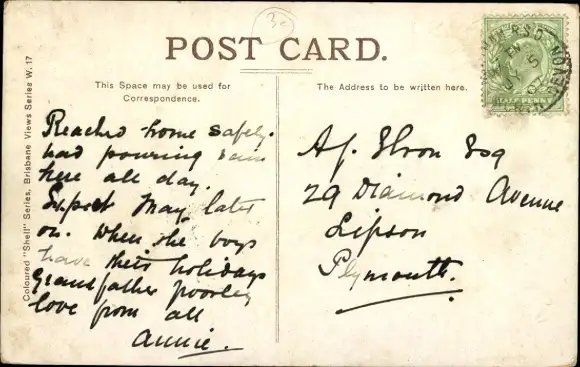 30
POST CARD.
This Space may be used for
Correspondence.
The Address to be written here.
Coloured "Shell" Series, Brisbane Views Series W. 17
HALF PENNY
Reached home safely.
had pouring rain
here all day.
Expect May later
on. When the boys
have their holidays
grandfather poorley
love from all
Annie.
Esq
29 Diamond Avenue
Lipson
Plymouth.